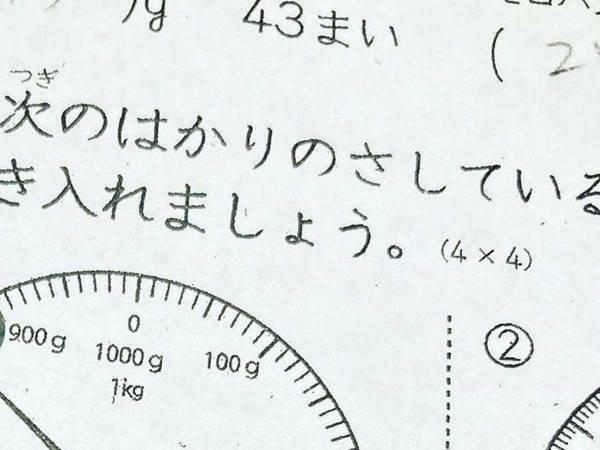 43まい
つぎ
次のはかりのさしている
き入れましょう。(4×4)
0
900g 1000g 100g
1kg
②